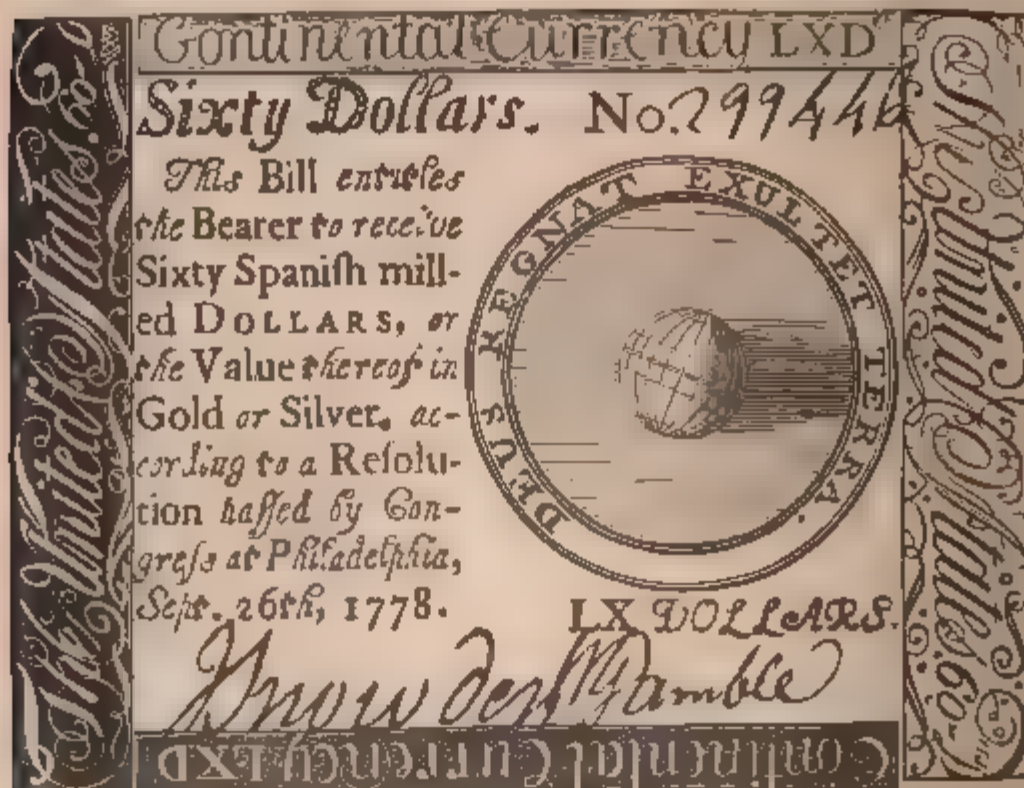 Continental Currency LXD
Sixty Dollars. No. 299446
This Bill entitles
the Bearer to receive
Sixty Spaniſh mill-
ed DOLLARS, or
the Value thereof in
Gold or Silver, ac-
cording to a Reſolu-
tion paſſed by Con-
greſs at Philadelphia,
Sept. 26th, 1778.
DEUS REGNAT EXULTET TERRA.
LX DOLLARS.
The United States. 60
The United States. 60
Continental Currency LXD